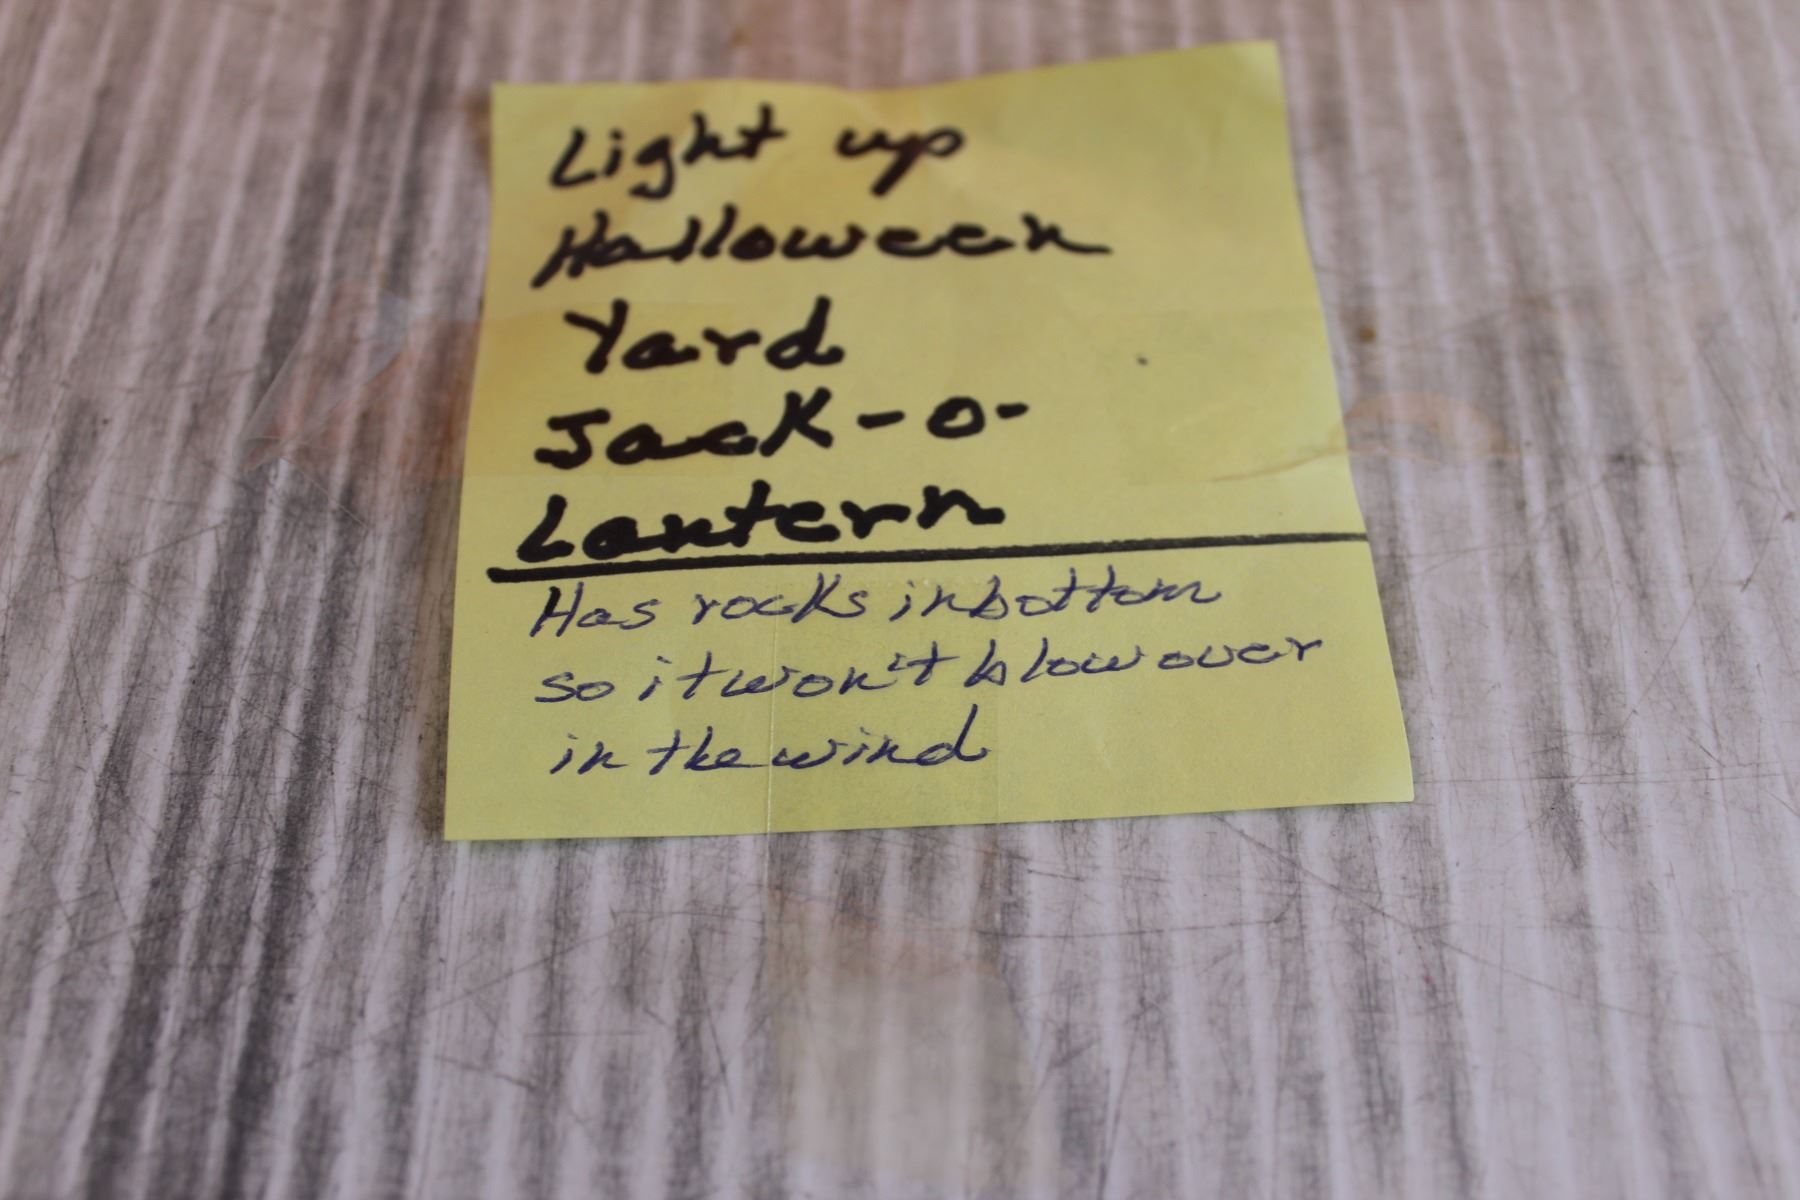 Light up
Halloween
Yard
Jack-o-
Lantern
Has rocks in bottom
so it won't blow over
in the wind